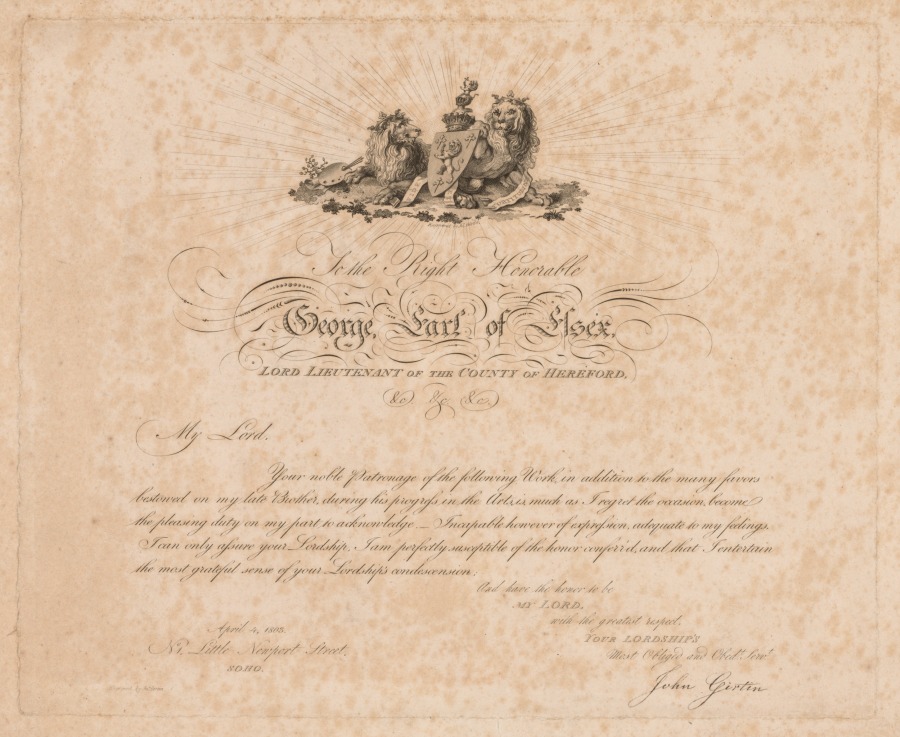 To the Right Honorable
George, Earl of Essex,
LORD LIEUTENANT OF THE COUNTY OF HEREFORD,
&c &c &c
My Lord.
Your noble Patronage of the following Work, in addition to the many favors
bestowed on my late Brother, during his progress in the Arts, is, much as I regret the occasion, become
the pleasing duty on my part to acknowledge — Incapable however of expression, adequate to my feelings,
I can only assure your Lordship, I am perfectly susceptible of the honor conferr'd, and that I entertain
the most grateful sense of your Lordship's condescension,
And have the honor to be
MY LORD,
with the greatest respect,
YOUR LORDSHIP'S
Most Obliged and Obedt. Servt.
John Girtin
April 4, 1803.
Little Newport Street,
SOHO.